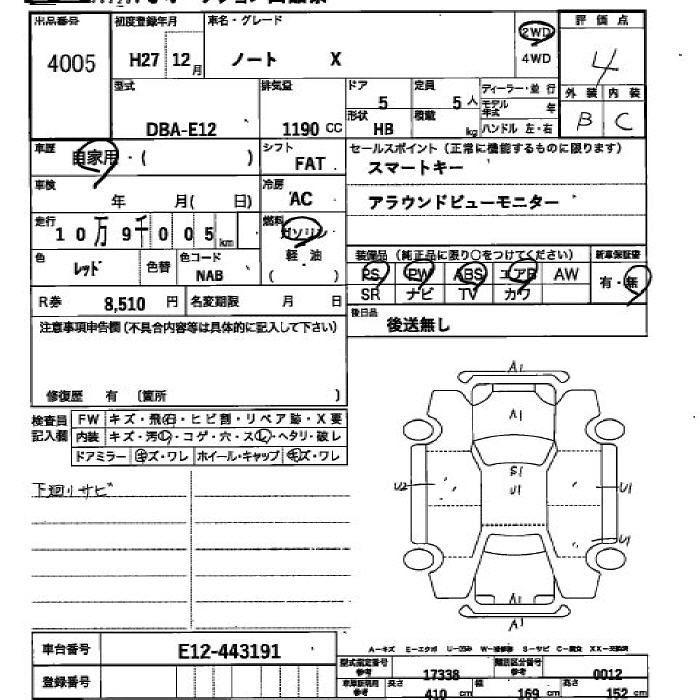 出品番号 初度登録年月 車名・グレード 2WD 評価点
4005 H27 12月 ノート X 4WD 4
型式 排気量 ドア 5 定員 5人 ディーラー・並行 外装 内装
DBA-E12 1190 CC 形状 HB 積載 kg モデル年式 年 B C
ハンドル 左・右
車歴 自家用・( ) シフト FAT セールスポイント(正常に機能するものに限ります)
スマートキー
車検 年 月( 日) 冷房 AC アラウンドビューモニター
走行 10万9千005km 燃料 ガソリン
軽油
( )
色 レッド 色替 色コード NAB 装備品(純正品に限り○をつけてください) 新車保証書
PS PW ABS エアB AW 有・無
SR ナビ TV カワ
R券 8,510 円 名変期限 月 日 後日品 後送無し
注意事項申告欄(不具合内容等は具体的に記入して下さい)
修復歴 有 〔箇所 〕
検査員記入欄 FW キズ・飛石・ヒビ割・リペア跡・X要
内装 キズ・汚レ・コゲ・穴・スレ・ヘタリ・破レ
ドアミラー キズ・ワレ ホイール・キャップ キズ・ワレ
下廻リサビ
A1
A1
S1
U2 U1 U1
A1
A1
A-キズ E-エクボ U-凹み W-補修跡 S-サビ C-腐食 XX-交換済
車台番号 E12-443191
登録番号
型式指定番号 参考 17338 類別区分番号 参考 0012
車庫証明用 参考 長さ 410 cm 幅 169 cm 高さ 152 cm